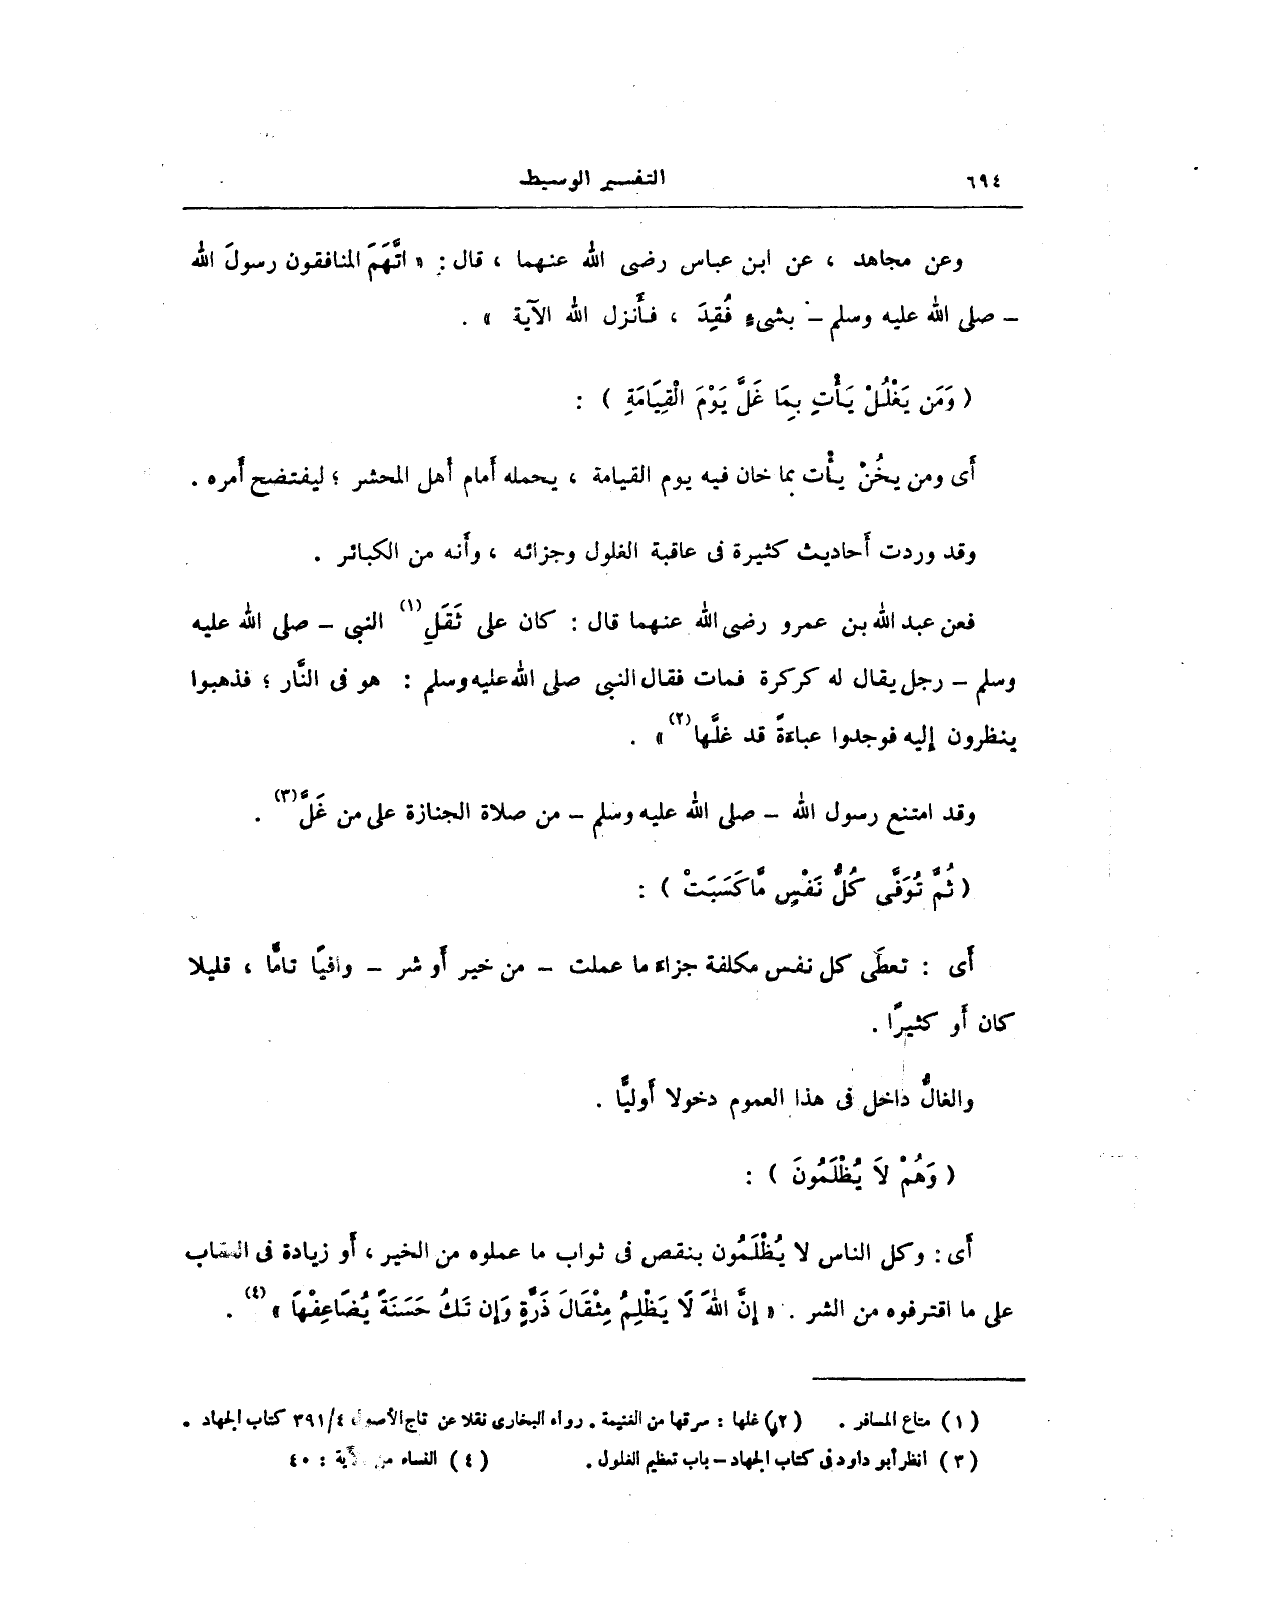 ٦٩٤
التفسير الوسيط
وعن مجاهد ، عن ابن عباس رضى الله عنهما ، قال : « اتَّهَمَ المنافقون رسولَ الله
– صلى الله عليه وسلم – بشىء فُقِدَ ، فأَنزل الله الآية » .
( وَمَن يَغْلُلْ يَأْتِ بِمَا غَلَّ يَوْمَ الْقِيَامَةِ ) :
أَى ومن يخُنْ يأْت بما خان فيه يوم القيامة ، يحمله أَمام أَهل المحشر ؛ ليفتضح أَمره .
وقد وردت أَحاديث كثيرة فى عاقبة الغلول وجزائه ، وأَنه من الكبائر .
فعن عبد الله بن عمرو رضى الله عنهما قال : كان على ثَقَلِ (١) النبى – صلى الله عليه
وسلم – رجل يقال له كركرة فمات فقال النبى صلى الله عليه وسلم : هو فى النَّار ؛ فذهبوا
ينظرون إليه فوجدوا عباءةً قد غلَّها (٢) » .
وقد امتنع رسول الله – صلى الله عليه وسلم – من صلاة الجنازة على من غَلَّ (٣) .
( ثُمَّ تُوَفَّى كُلُّ نَفْسٍ مَّا كَسَبَتْ ) :
أَى : تعطَى كل نفس مكلفة جزاءَ ما عملت – من خير أَو شر – وافيًا تامًّا ، قليلا
كان أَو كثيرًا .
والغالُّ داخل فى هذا العموم دخولا أَوليًّا .
( وَهُمْ لَا يُظْلَمُونَ ) :
أَى : وكل الناس لا يُظْلَمُون بنقص فى ثواب ما عملوه من الخير ، أَو زيادة فى العقاب
على ما اقترفوه من الشر . « إِنَّ اللهَ لَا يَظْلِمُ مِثْقَالَ ذَرَّةٍ وَإِن تَكُ حَسَنَةً يُضَاعِفْهَا » (٤) .
(١) متاع المسافر . (٢) غلها : سرقها من الغنيمة . رواه البخارى نقلا عن تاج الأصول ٣٩١/٤ كتاب الجهاد .
(٣) أنظر أبو داود فى كتاب الجهاد – باب تعظيم الغلول . (٤) النساء من الآية : ٤٠